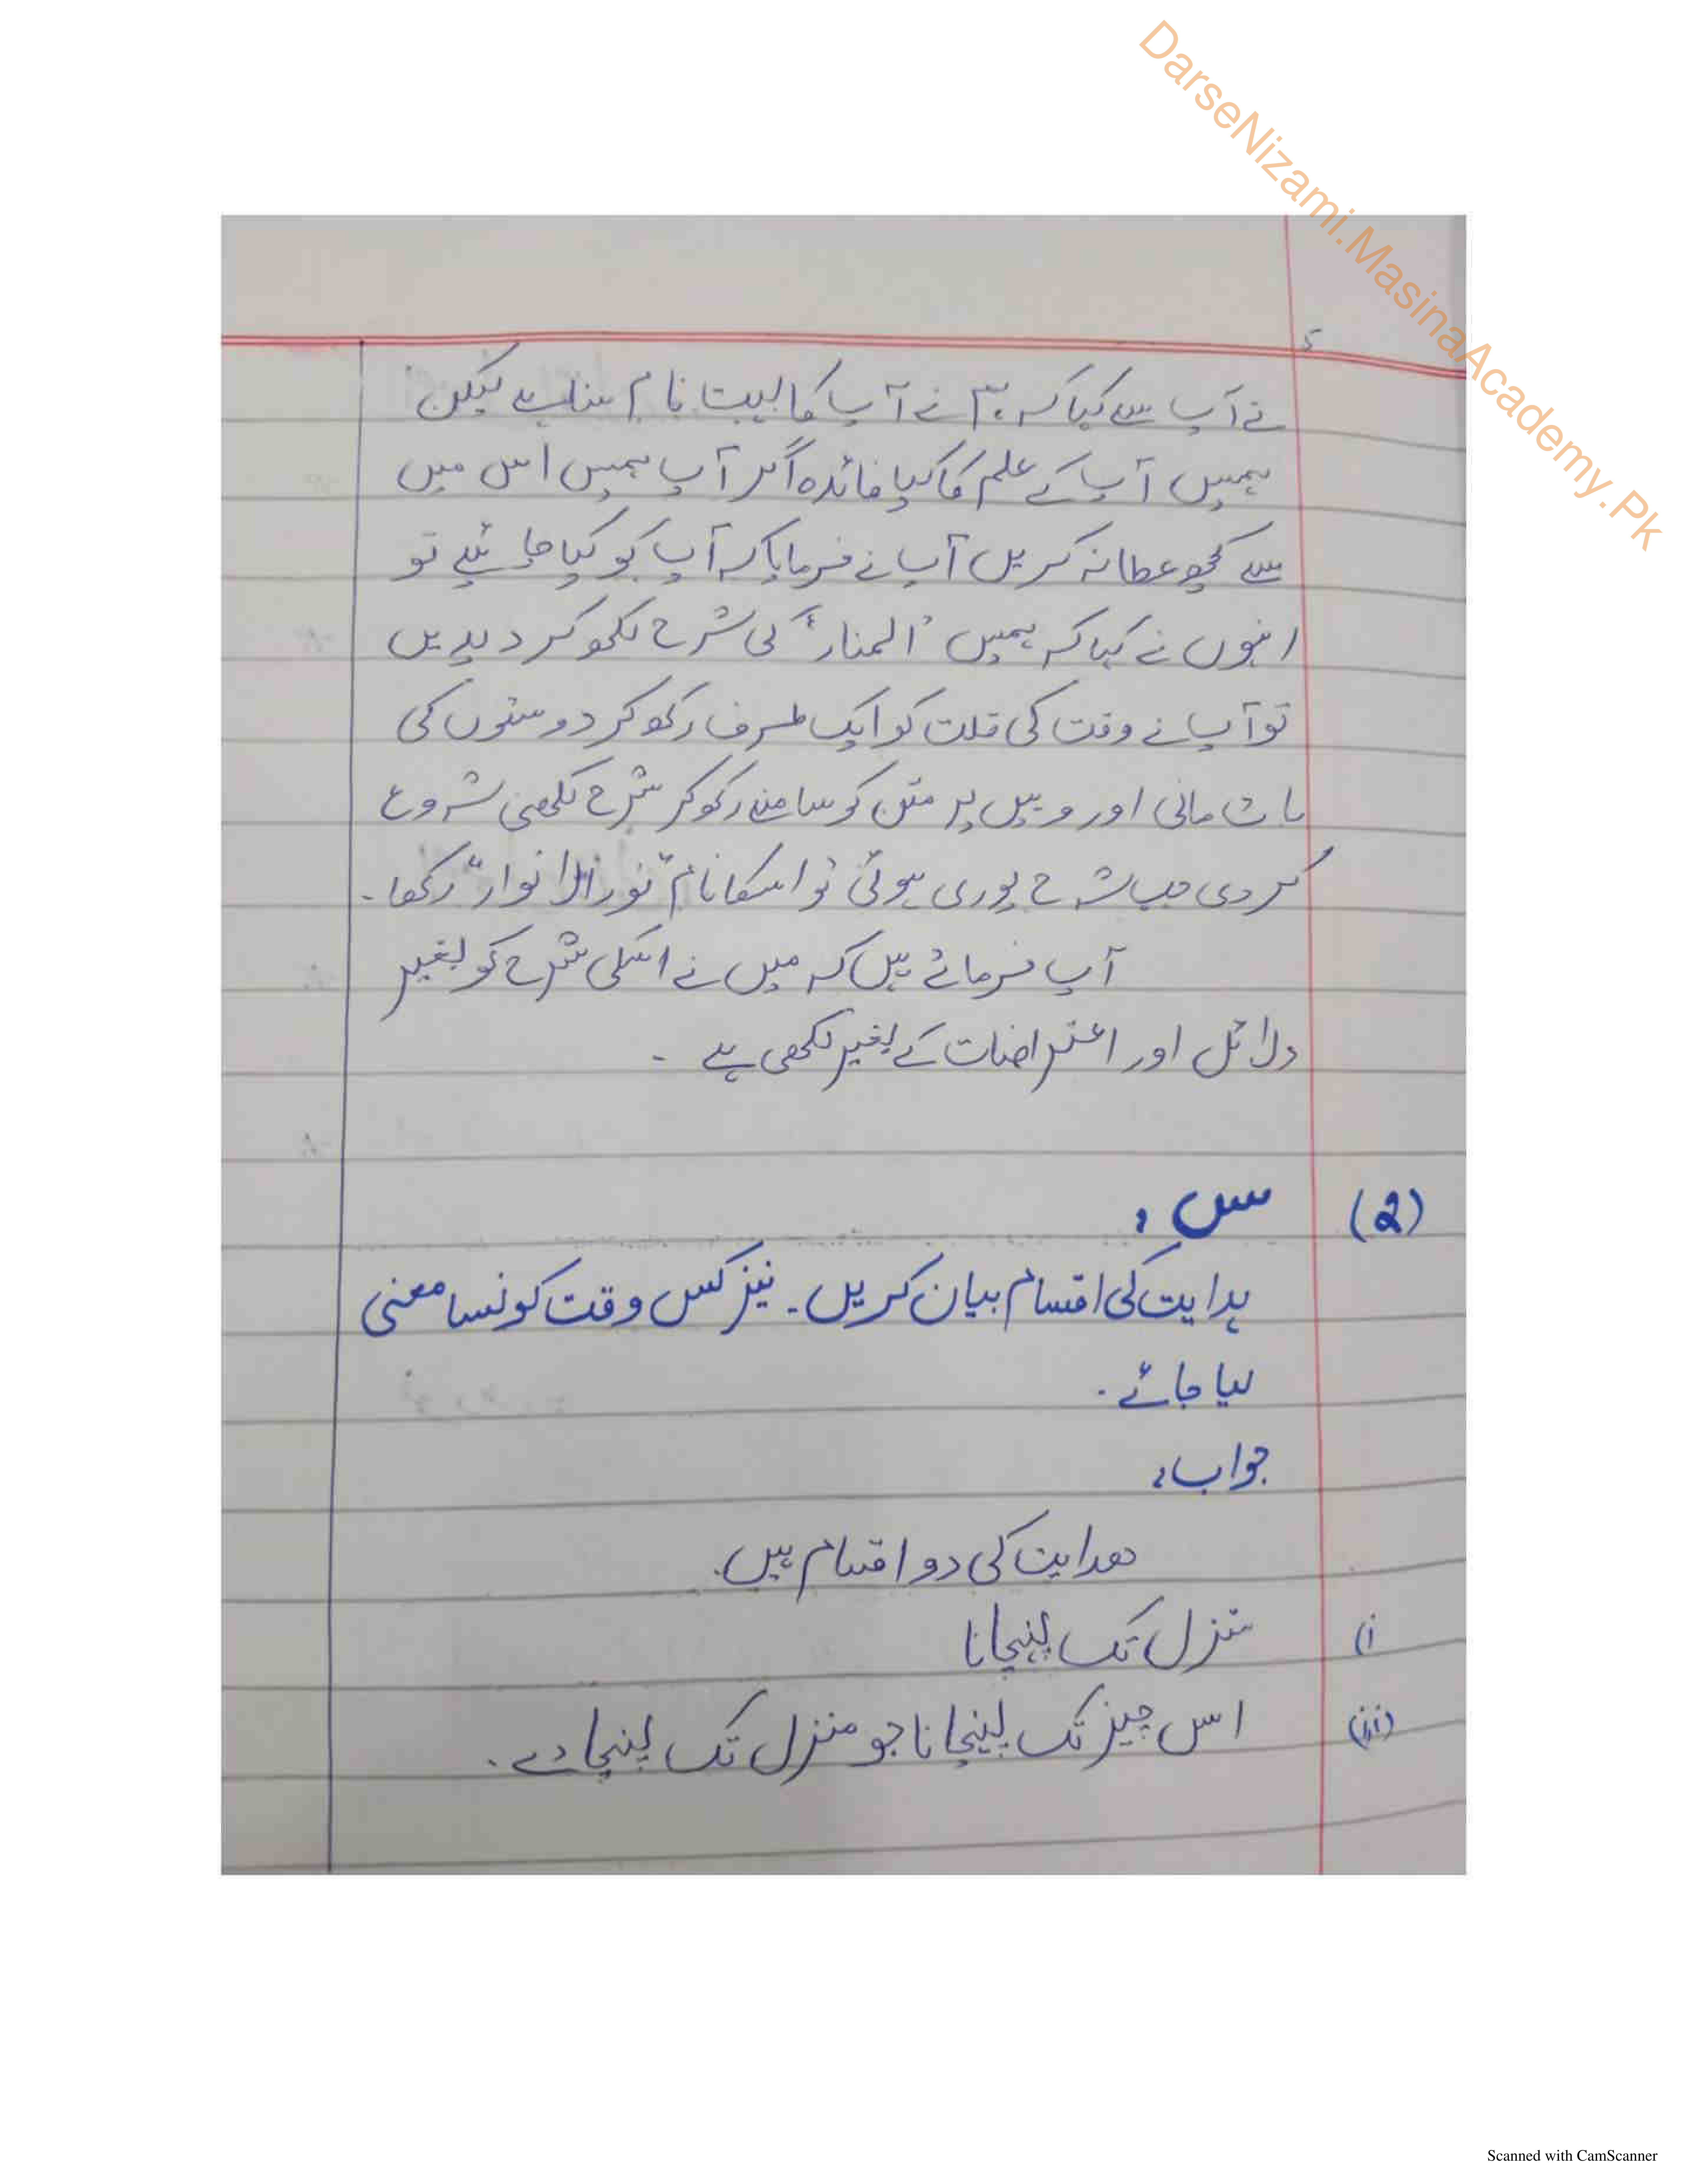 DarseNizami.MasinaAcademy.Pk
نے آپ سے کہا کہ ہم نے آپ کا بہت نام سنا ہے لیکن
ہمیں آپ کے علم کا کیا فائدہ اگر آپ ہمیں اس میں
سے کچھ عطا نہ کریں آپ نے فرمایا کہ آپ کو کیا چاہئیے تو
انہوں نے کہا کہ ہمیں "المنار" کی شرح لکھ کر دیدیں
تو آپ نے وقت کی قلت کو ایک طرف رکھ کر دوستوں کی
بات مانی اور وہیں پر متن کو سامنے رکھ کر شرح لکھنی شروع
کر دی جب شرح پوری ہوئی تو اسکا نام "نور الانوار" رکھا۔
آپ فرماتے ہیں کہ میں نے اسکی شرح کو بغیر
دلائل اور اعتراضات کے بغیر لکھی ہے ۔
(2) س:
ہدایت کی اقسام بیان کریں۔ نیز کس وقت کونسا معنی
لیا جائے۔
جواب:
ھدایت کی دو اقسام ہیں.
i) منزل تک پہنچانا
(ii) اس چیز تک پہنچانا جو منزل تک پہنچا دے ۔
Scanned with CamScanner